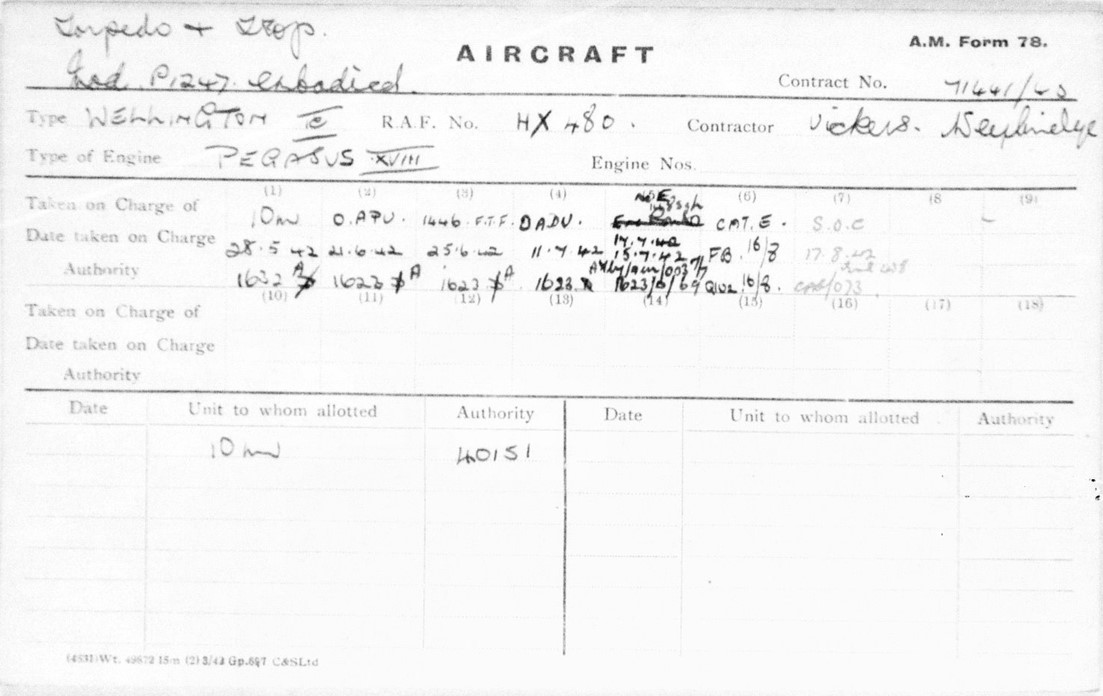 Torpedo + Trop.
AIRCRAFT
A.M. Form 78.
Mod P1247. embodied.
Contract No. 71441/40
Type WELLINGTON IC R.A.F. No. HX 480. Contractor Vickers. Weybridge
Type of Engine PEGASUS XVIII Engine Nos.
(1) (2) (3) (4) (6) (7) (8 (9)
Taken on Charge of 10 MU O.APU. 1446 F.T.F. DADU. CAT. E. S.O.C
Date taken on Charge 28.5.42 21.6.42 25.6.42 11.7.42 14.7.42 15.7.42 FB. 16/8 17.8.42
Authority 1622 A 1622 A 1623 A 1623 1623/ Q102 16/8. /073
(10) (11) (12) (13) (14) (15) (16) (17) (18)
Taken on Charge of
Date taken on Charge
Authority
Date Unit to whom allotted Authority Date Unit to whom allotted Authority
10 MU 40151
(4831) Wt. 49872 15m (2) 3/42 Gp.697 C&SLtd